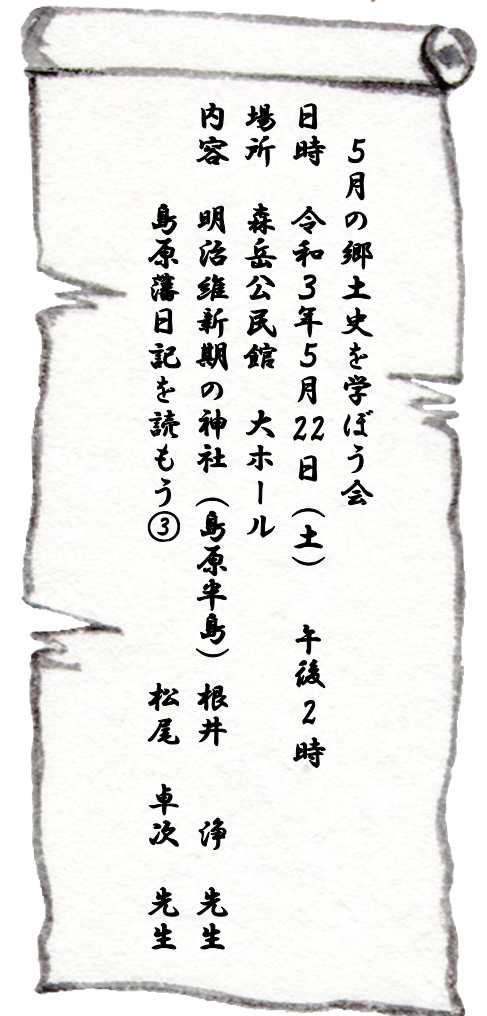 5月の郷土史を学ぼう会
日時　令和3年5月22日（土）　午後2時
場所　森岳公民館　大ホール
内容　明治維新期の神社（島原半島）根井　浄　先生
島原藩日記を読もう③　松尾　卓次　先生